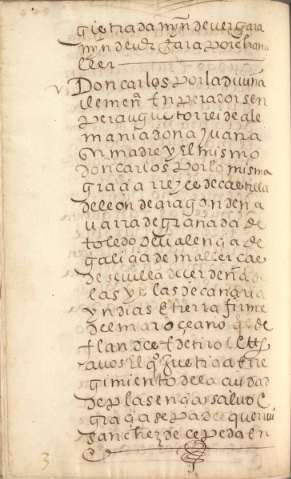 gistrada myn de vergara
myn de ver gara por chan
ller
Don carlos por la divina
clemen enperador sen
per augus to rei de ale
mania dona juana
su madre y el mismo
don carlos por la misma
gracia rreyes de castilla
de leon de aragon de na
varra de granada de
toledo de valençia de
galizia de mallorcas
de sevilla de cerdeña
las yslas de canaria
yndias e tierra firme
del mar oçeano
flandes e de tirol
a vos el q fue tiga e rre
gimiento de la çiudad
de plasençia salud e
graçia sepades que
sanchez de cepeda en